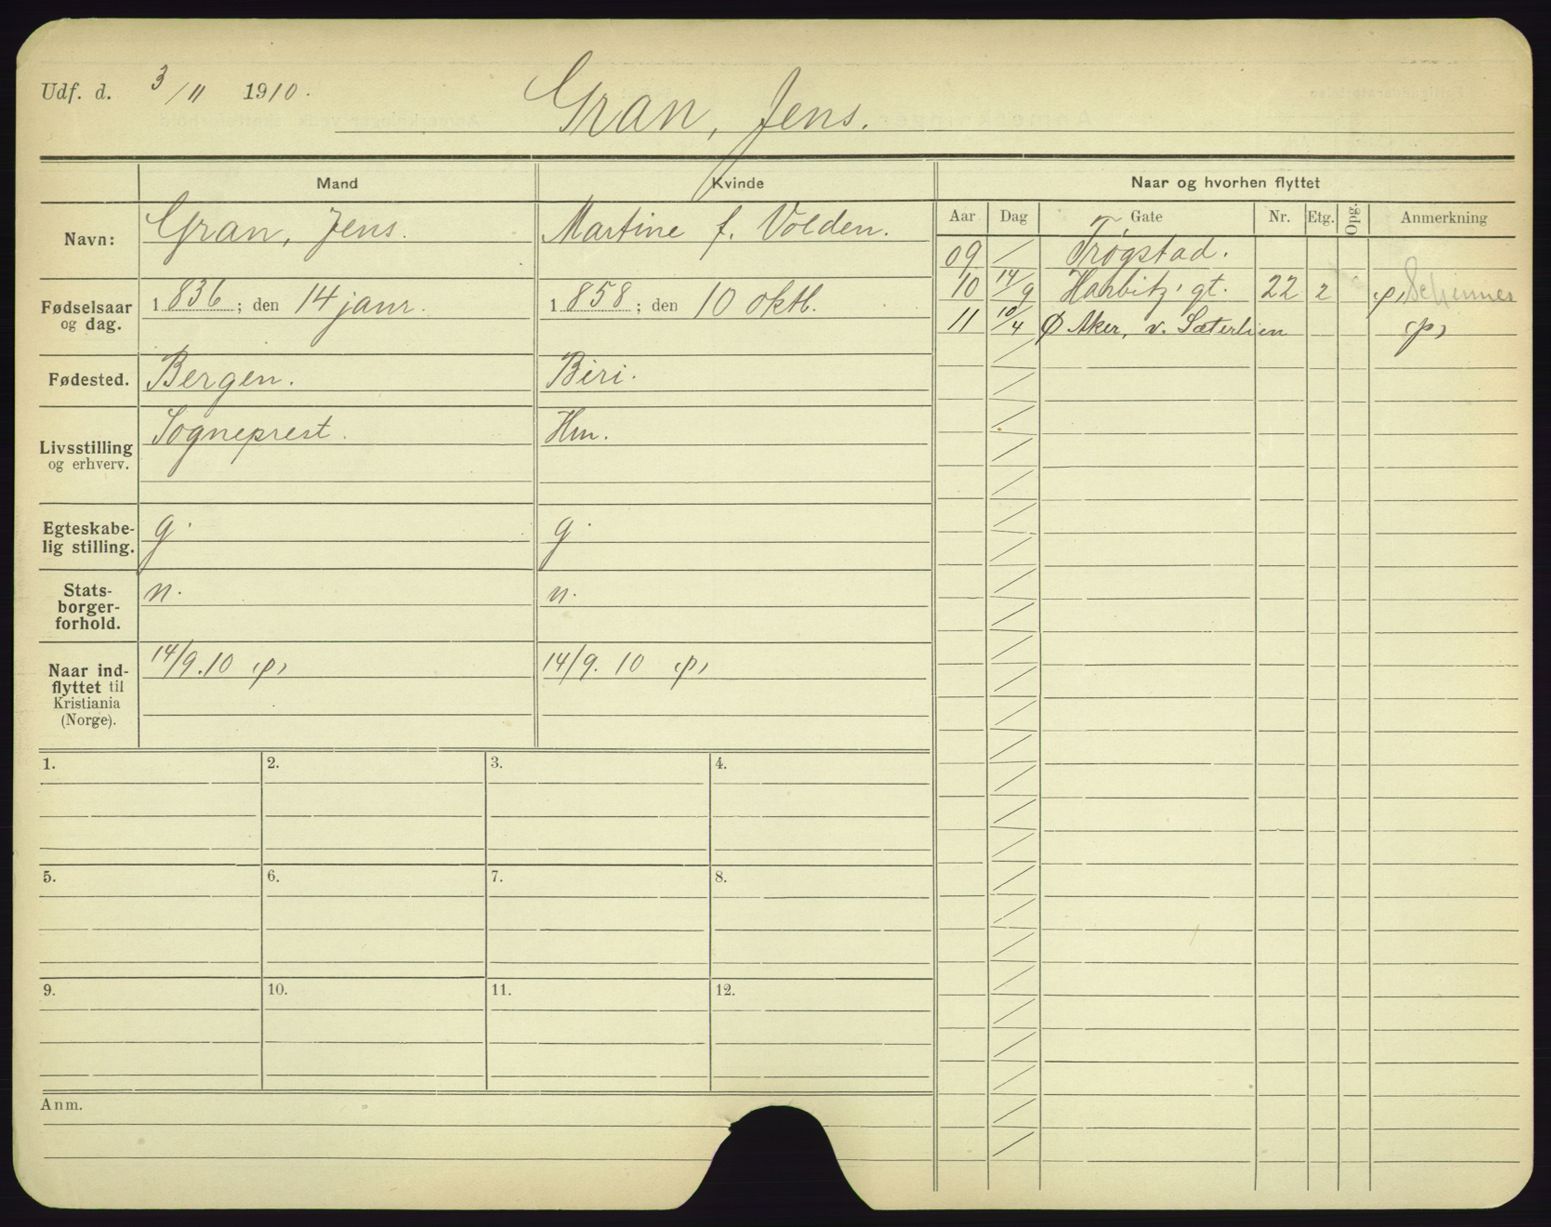 Udf. d. 3/11 1910.
Gran, Jens.
Mand Kvinde Naar og hvorhen flyttet
Navn: Gran, Jens. Martine f. Volden.
Fødselsaar og dag. 1836; den 14 janr. 1858; den 10 oktb.
Fødested. Bergen. Biri.
Livsstilling og erhverv. Sogneprest. Hm.
Egteskabe-
lig stilling. g. g.
Stats-
borger-
forhold. n. n.
Naar ind-
flyttet til
Kristiania
(Norge). 14/9.10 (p) 14/9.10 (p)
Aar Dag Gate Nr. Etg. Opg. Anmerkning
09 / Trøgstad.
10 14/9 Harbitz' gt. 22 2 (p)
11 10/4 Ø Aker, v. Sæterlien (p)
1. 2. 3. 4.
5. 6. 7. 8.
9. 10. 11. 12.
Anm.